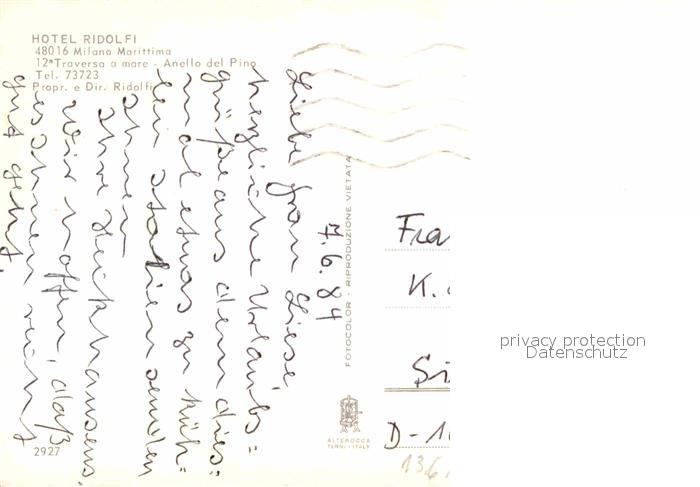 HOTEL RIDOLFI
48016 Milano Marittima
12ª Traversa a mare - Anello del Pino
Tel. 73723
Propr. e Dir. Ridolfi
7.6.84
Liebe Frau Liese,
herzliche Urlaubs=
grüße aus dem dies=
mal etwas zu küh=
len Italien senden
Ihnen
Ihre Heckhausens.
Wir hoffen, daß
es Ihnen recht
gut geht.
2927
FOTOCOLOR - RIPRODUZIONE VIETATA
ALTEROCCA
TERNI - ITALY
Fra
K.
Si
D-1
13.6.
privacy protection
Datenschutz